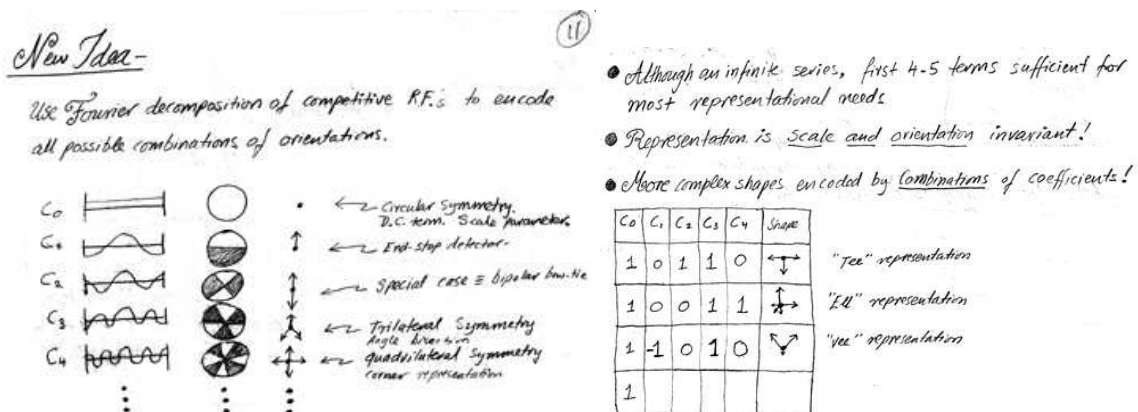 11
New Idea-
Use Fourier decomposition of competitive R.F.'s to encode
all possible combinations of orientations.
C0 Circular Symmetry.
D.C. term. Scale parameter.
C1 End-stop detector-
C2 Special case ≡ bipolar bow-tie
C3 Trilateral Symmetry
Angle bisection
C4 quadrilateral symmetry
corner representation
Although an infinite series, first 4-5 terms sufficient for
most representational needs
Representation is scale and orientation invariant!
More complex shapes encoded by Combinations of coefficients!
C0 C1 C2 C3 C4 Shape
1 0 1 1 0 "Tee" representation
1 0 0 1 1 "Ell" representation
1 -1 0 1 0 "Vee" representation
1